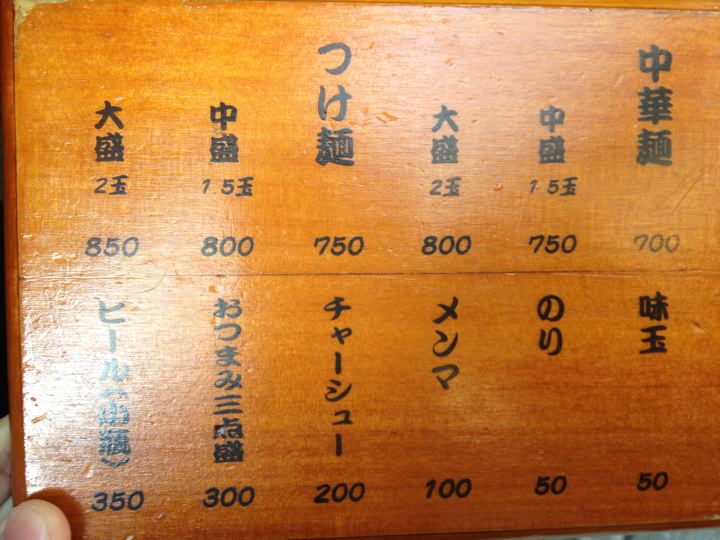 中華麺
700
中盛
1 5玉
750
大盛
2玉
800
つけ麺
750
中盛
1 5玉
800
大盛
2玉
850
味玉
50
のり
50
メンマ
100
チャーシュー
200
おつまみ三点盛
300
ビール(小瓶)
350